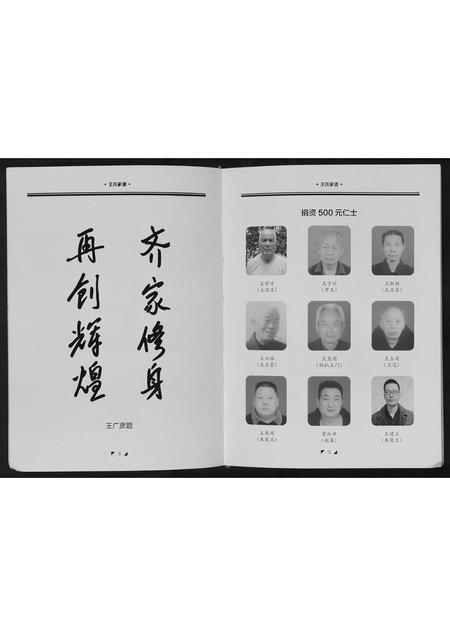 王氏家谱
齐家修身
再创辉煌
王广彦题
王氏家谱
捐资 500 元仁士
王学才
（大门王）
（罗王）
王新敏
（北王营）
王兴林
（北王营）
王显周
（林扒王门）
王占周
（王宅）
王成周
（朱岗王）
（赵集）
王建立
（朱岗王）